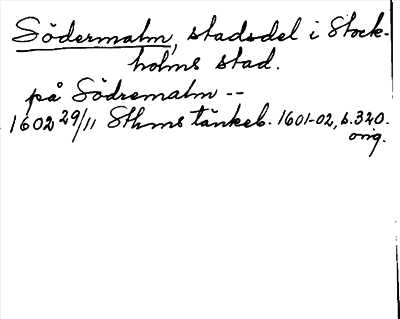 Södermalm, stadsdel i Stock-
holms stad.
på Södremalm --
1602 29/11 Sthms tänkeb. 1601-02, s. 320.
orig.